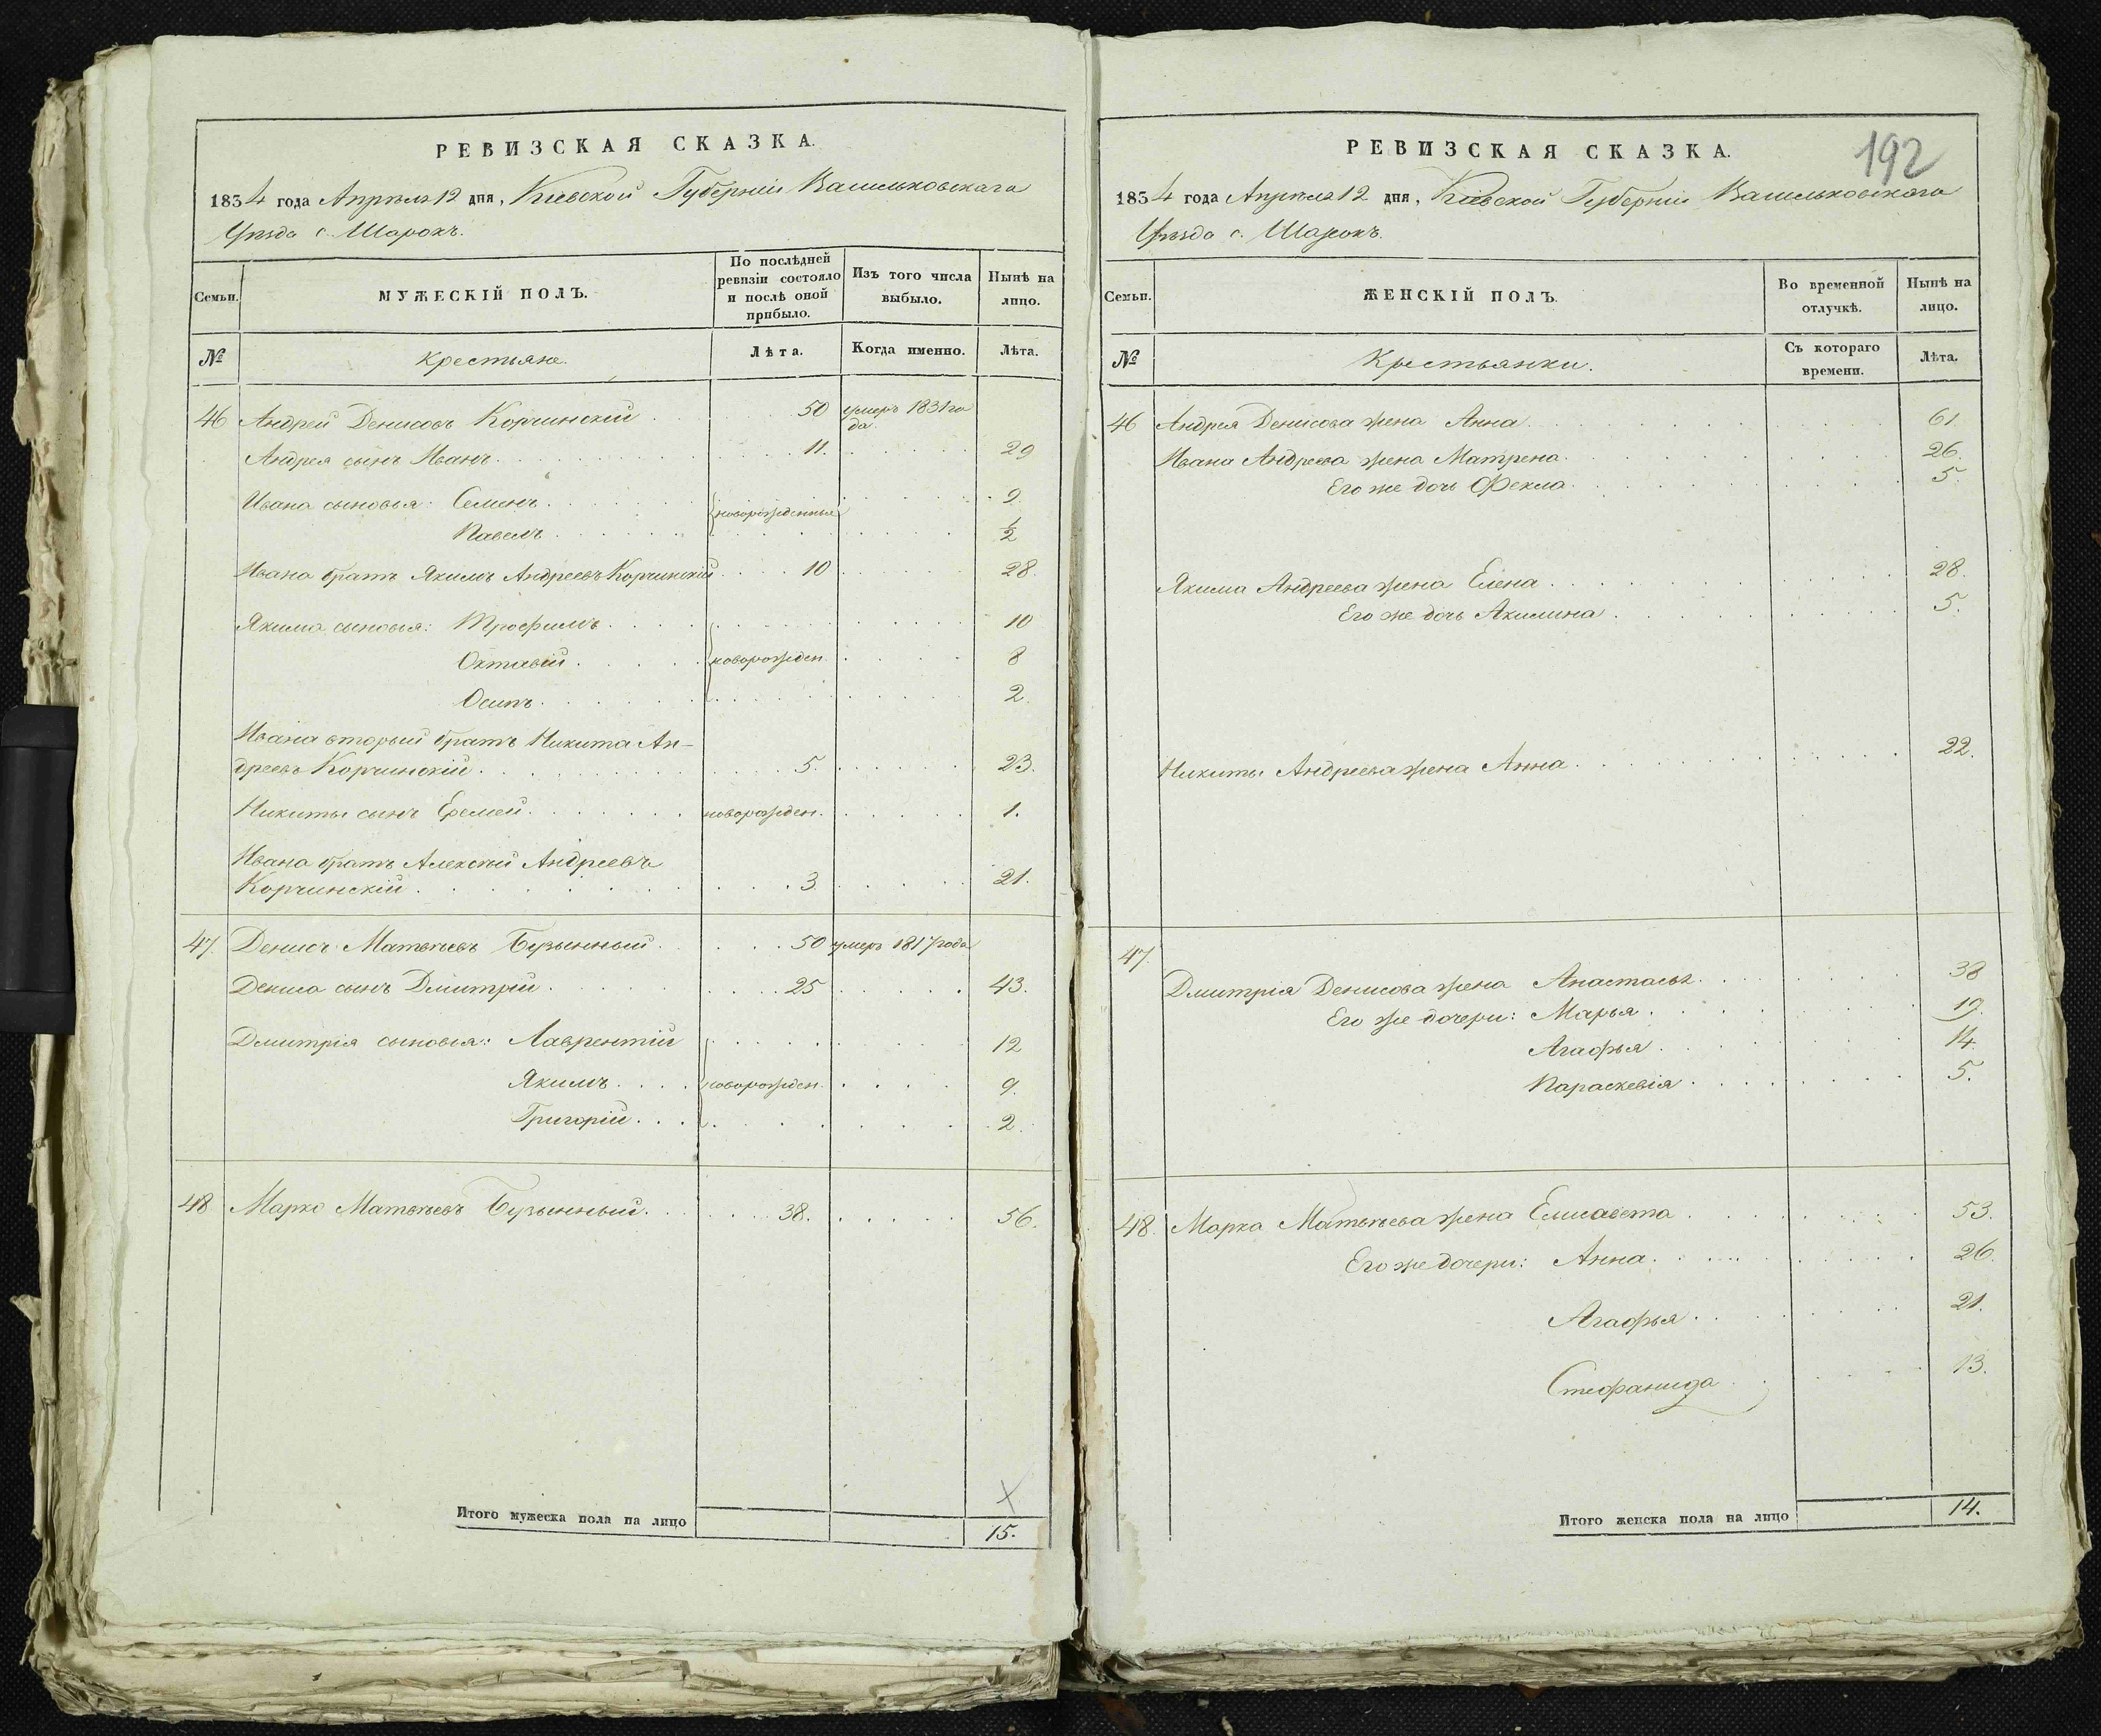 РЕВИЗСКАЯ СКАЗКА.
1834 года Апрѣля 12 дня, Кіевской Губерніи Васильковскаго
Уѣзда с. Шарокъ.
Семьи.
МУЖЕСКІЙ ПОЛЪ.
По послѣдней
ревизіи состояло
и послѣ оной
прибыло.
Изъ того числа
выбыло.
Нынѣ на
лицо.
№
Крестьяне.
Лѣта.
Когда именно.
Лѣта.
46 Андрей Денисовъ Корчинскій 50 умеръ 1831 го
да.
Андрея сынъ Иванъ 11. 29
Ивана сыновья: Семенъ 9
новорожденныя
Павелъ ½
Ивана братъ Якимъ Андреевъ Корчинскій 10 28.
Якима сыновья: Трофимъ 10
Октавій новорожден. 8
Осипъ 2.
Ивана вторый братъ Никита Ан-
дреевъ Корчинскій 5. 23.
Никиты сынъ Еремей новорожден. 1.
Ивана братъ Алексѣй Андреевъ
Корчинскій 3 21.
47. Денисъ Матвѣевъ Бузынный 50 умеръ 1817 года
Дениса сынъ Дмитрій 25 43.
Дмитрія сыновья: Лаврентій 12
Якимъ новорожден. 9.
Григорій 2.
48 Марко Матвѣевъ Бузынный 38. 56.
Итого мужеска пола на лицо 15.
РЕВИЗСКАЯ СКАЗКА.
192
1834 года Апрѣля 12 дня, Кіевской Губерніи Васильковскаго
Уѣзда с. Шарокъ.
Семьи.
ЖЕНСКІЙ ПОЛЪ.
Во временной
отлучкѣ.
Нынѣ на
лицо.
№
Крестьянки.
Съ котораго
времени.
Лѣта.
46 Андрея Денисова жена Анна 61.
Ивана Андреева жена Матрена 26.
Его же дочь Фекла 5.
Якима Андреева жена Елена 28.
Его же дочь Акилина 5.
Никиты Андреева жена Анна 22.
47.
Дмитрія Денисова жена Анастасья 38
Его же дочери: Марья 19.
Агафья 14.
Параскевія 5.
48. Марка Матвѣева жена Елисавета 53.
Его же дочери: Анна 26.
Агафья 21.
Стефанида 13.
Итого женска пола на лицо 14.